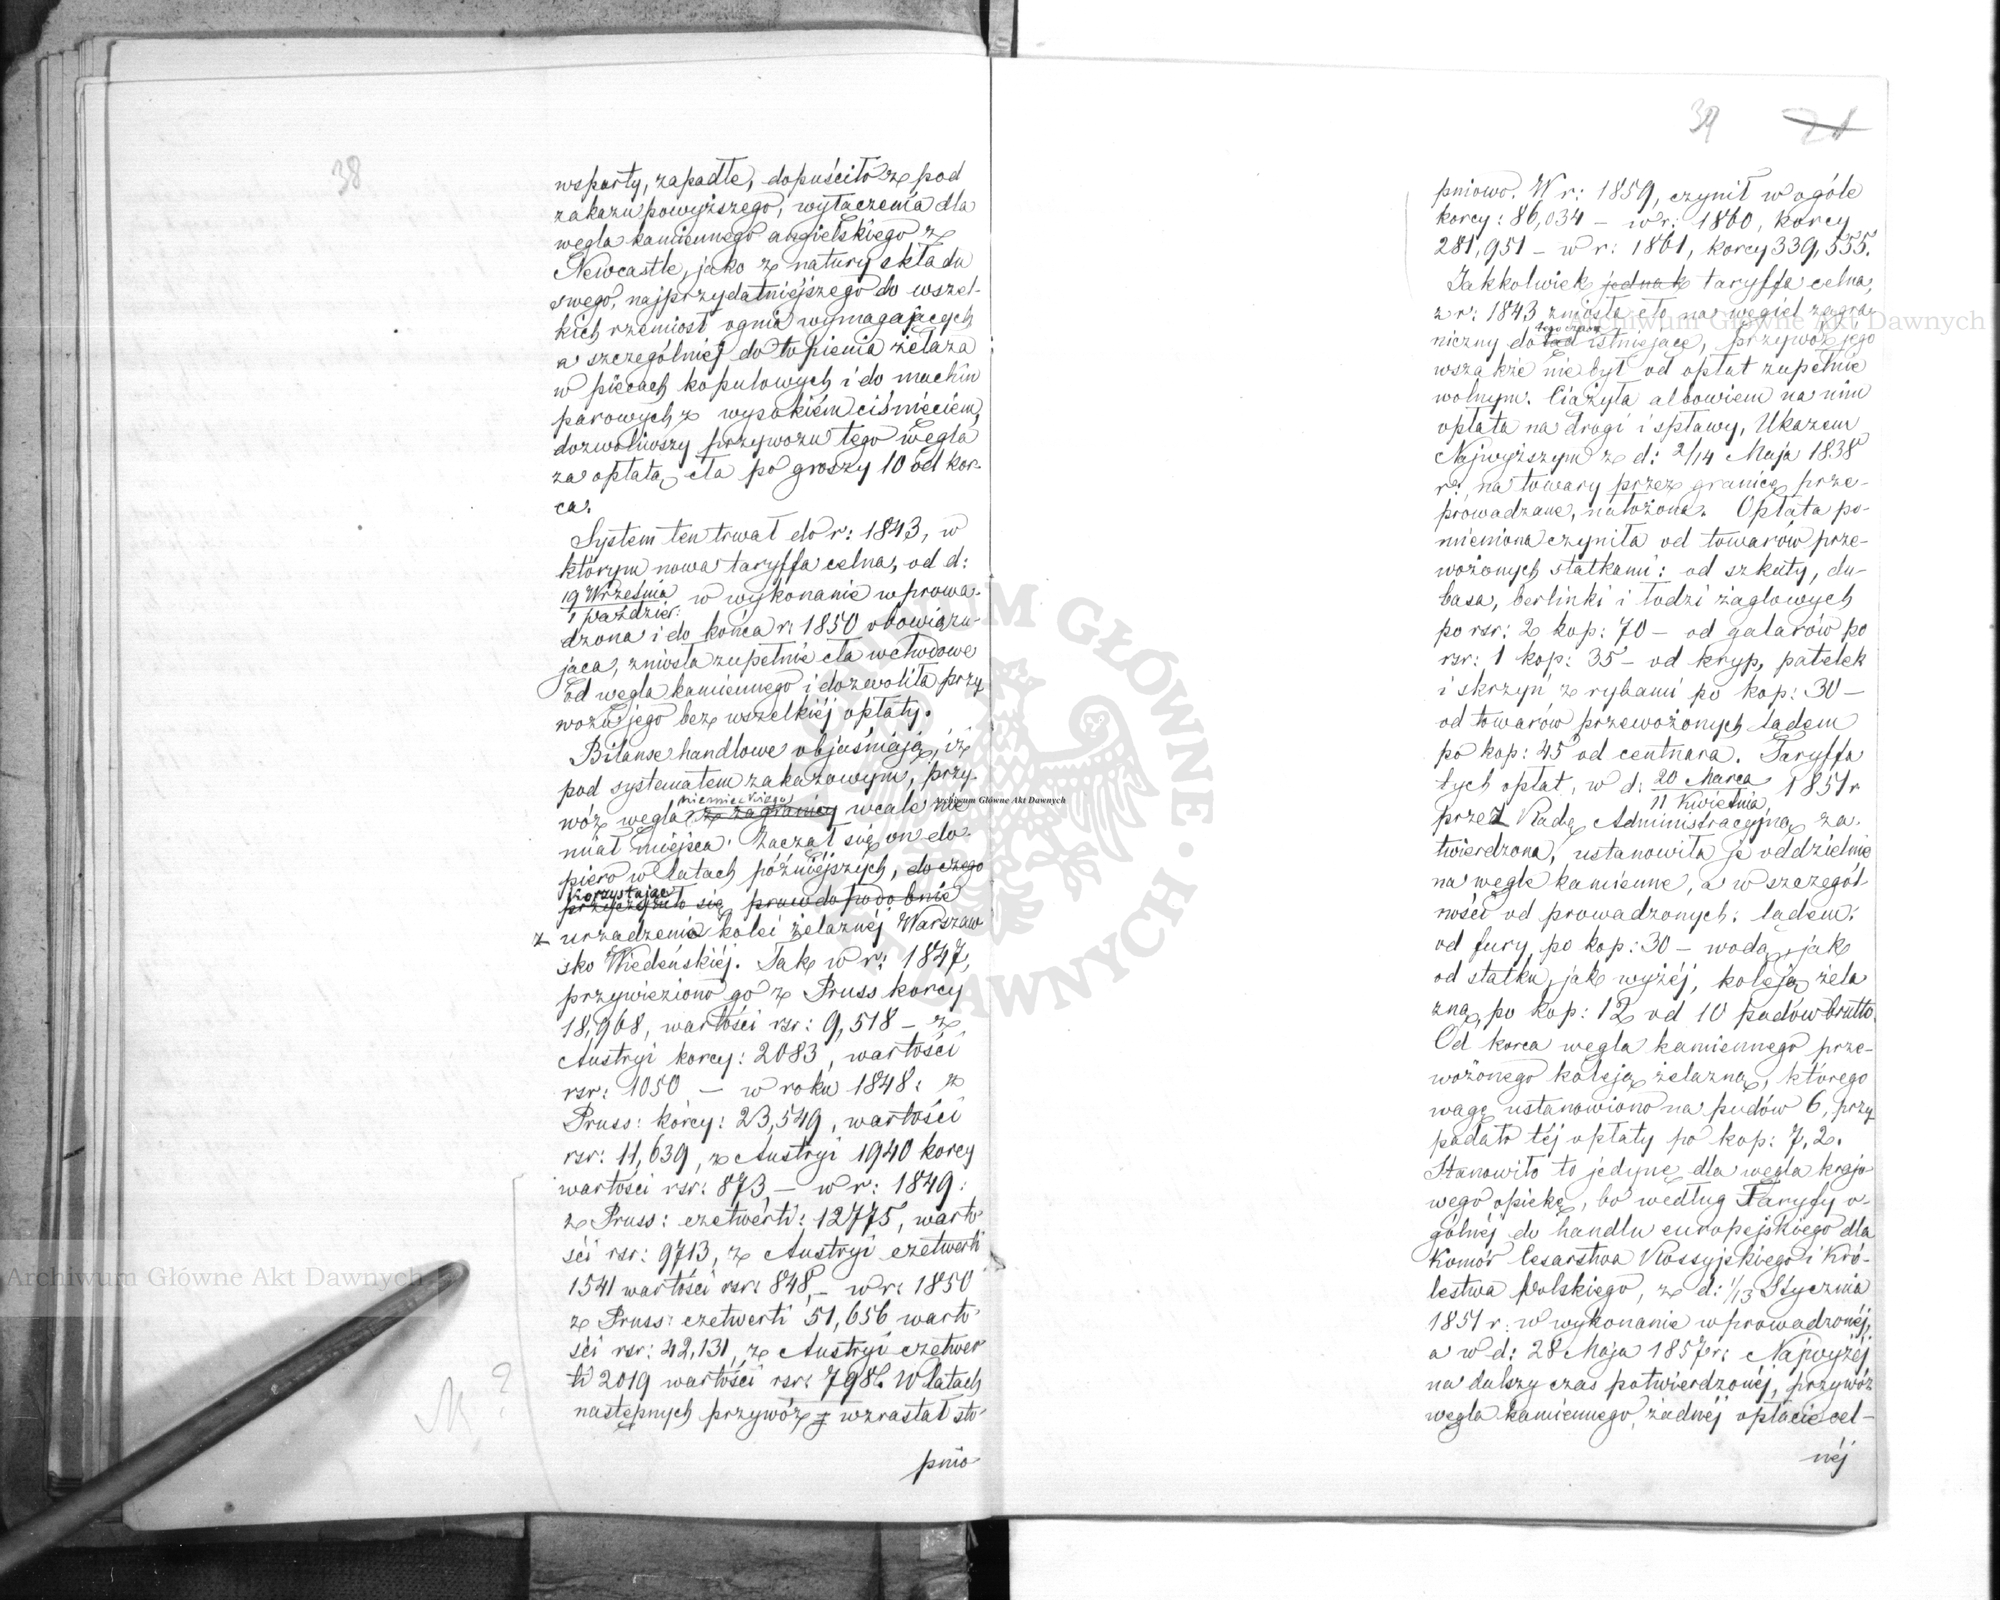 38
wsparty, zapadłe, dopuściło z pod
zakazu powyższego, wyłączenia dla
węgla kamiennego angielskiego z
Newcastle, jako z natury składu
swego, najprzydatniejszego do wszel-
kich rzemiosł ognia wymagających
a szczególniej do topienia żelaza
w piecach kopulowych i do machin
parowych z wysokiém ciśnieciem,
dozwoliwszy przywozu tego węgla
za opłatą cła po groszy 10 od kor-
ca.
System ten trwał do r: 1843, w
którym nowa taryffa celna, od d:
19 Września / 1 Paździer: w wykonanie wprowa-
dzona i do końca r: 1850 obowiązu-
jąca, zniosła zupełnie cła wchodowe
od węgla kamiennego i dozwoliła przy
wozu jego bez wszelkiéj opłaty.
Bilanse handlowe objaśniają, iż
pod systematem zakazowym, przy-
niemieckiego
wóz węgla z zagranicy wcale nie
miał miejsca. Zaczął się on do-
piero w latach późniéjszych, do czego
korzystając
przyczyniło się prawdopodobnie
z urządzenia kolei żelaznéj Warszaw
sko Wiedeńskiéj. Tak w r: 1847,
przywieziono go z Pruss korcy
18,968, wartości rsr: 9,518 – z
Austryi korcy: 2083, wartości
rsr: 1050 – w roku 1848: z
Pruss: korcy: 23,549, wartości
rsr: 11,639, z Austryi 1940 korcy
wartości rsr: 873 – w r: 1849:
z Pruss: czetwerti: 12775, warto-
ści rsr: 9713, z Austryi czetwerti
1541 wartości rsr: 848, – w r: 1850
z Pruss: czetwerti 51,656 warto-
ści rsr: 42,131, z Austryi czetwer
ti 2019 wartości rsr: 798. W latach
następnych przywóz wzrastał sto-
pnio
39 21
pniowo. W r: 1859, czynił w ogóle
korcy: 86,034 – w r: 1860, korcy
281,951 – w r: 1861, korcy 339,555.
Jakkolwiek jednak taryffa celna,
z r: 1843 zniosła cło na węgiel zagra-
tego czasu
niczny do tąd istniejące, przywóz jego
wszakże nie był od opłat zupełnie
wolnym. Ciążyła albowiem na nim
opłata na drogi i spławy, Ukazem
Najwyższym z d: 2/14 Maja 1838
r:, na towary przez granicę prze-
prowadzane, nałożona. Opłata po-
mieniona czyniła od towarów prze-
wożonych statkami: od szkuty, du-
basa, berlinki i łodzi żaglowych
po rsr: 2 kop: 70 – od galarów po
rsr: 1 kop: 35 – od kryp, patelek
i skrzyń z rybami po kop: 30 –
od towarów przewożonych lądem
po kop: 45 od centnara. Taryffa
tych opłat, w d: 20 Marca / 11 Kwietnia, 1851 r
przez Radę Administracyjną za-
twierdzona, ustanowiła je oddzielnie
na węgle kamienne, a w szczegól-
ności od prowadzonych: lądem:
od fury, po kop: 30 – wodą, jak
od statku, jak wyżéj, koleją żela
zną, po kop: 12 od 10 pudów brutto.
Od korca węgla kamiennego prze-
wożonego koleją żelazną, którego
wagę ustanowiono na pudów 6, przy
padało téj opłaty po kop: 7,2.
Stanowiło to jedynę, dla węgla krajo
wego opiekę, bo według Taryfy o-
gólnéj do handlu europejskiego dla
Komór Cesarstwa Rossyjskiego i Kró-
lestwa Polskiego, z d: 1/13 Stycznia
1851 r: w wykonanie wprowadzonéj,
a w d: 28 Maja 1857 r: Najwyżéj
na dalszy czas potwierdzonéj, przywóz
węgla kamiennego, żadnéj opłacie cel-
néj
Archiwum Główne Akt Dawnych
Archiwum Główne Akt Dawnych
Archiwum Główne Akt Dawnych
ARCHIWUM GŁÓWNE AKT DAWNYCH